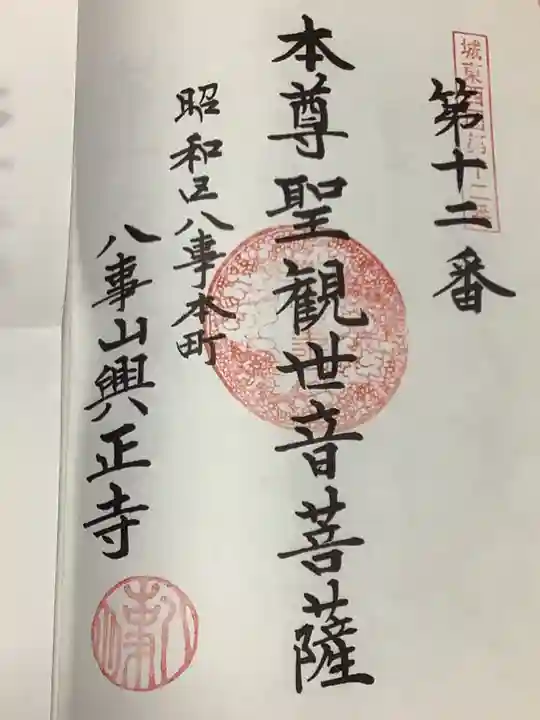 城東西国第十二番
第十二番
本尊聖観世音菩薩
昭和区八事本町
八事山興正寺